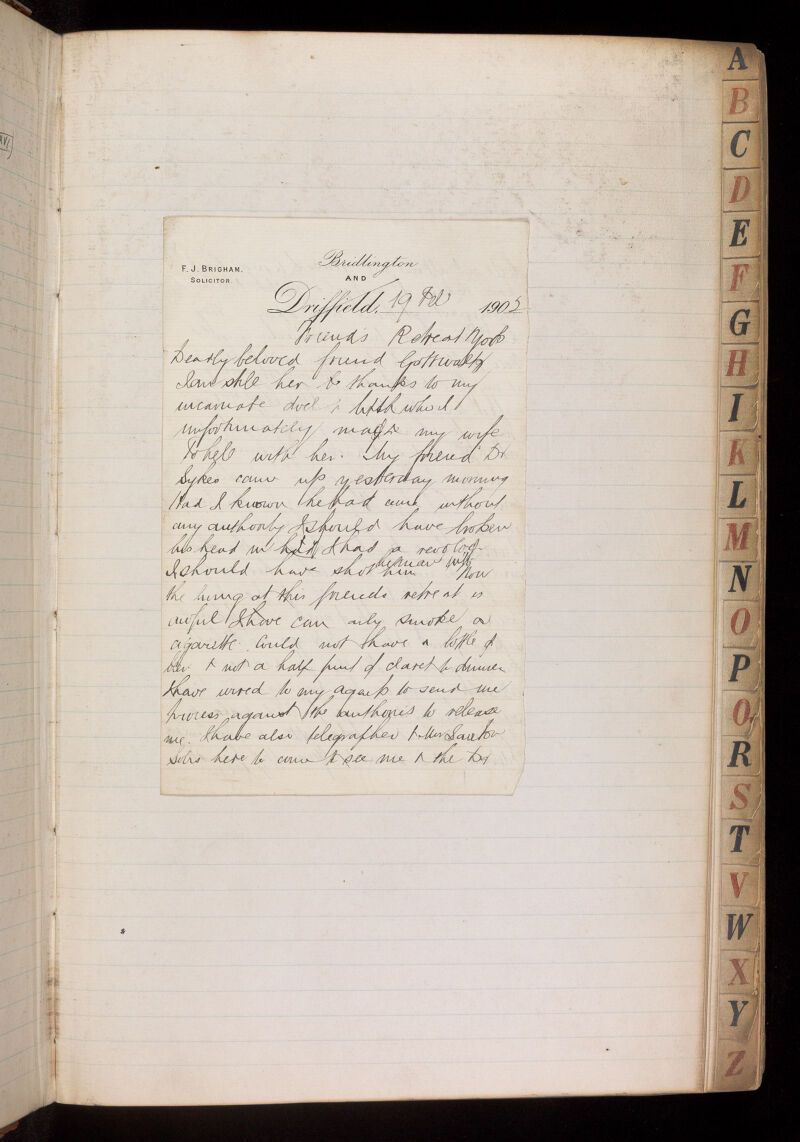 F. J. BRIGHAM.
SOLICITOR.
Bridlington
AND
Driffield, 19 Feb 1905
Friends Retreat York
Dearly beloved friend
I am still her & thanks to my
incarnate
unfortunately my wife
To hell with her. My friend Dr
Sykes came up yesterday morning
Had I known he had come without
any authority I should have broken
his head in had I had a revolver
I should have shot him Now
the living at this friends retreat is
awful I have can only smoke a
cigarette Could not have a bottle of
beer & not a half pint of claret to dinner
I have wired to my agents to send me
process against the to release
me. I have also
here to come & see me & the
A
B
C
D
E
F
G
H
I
K
L
M
N
O
P
Q
R
S
T
V
W
X
Y
Z